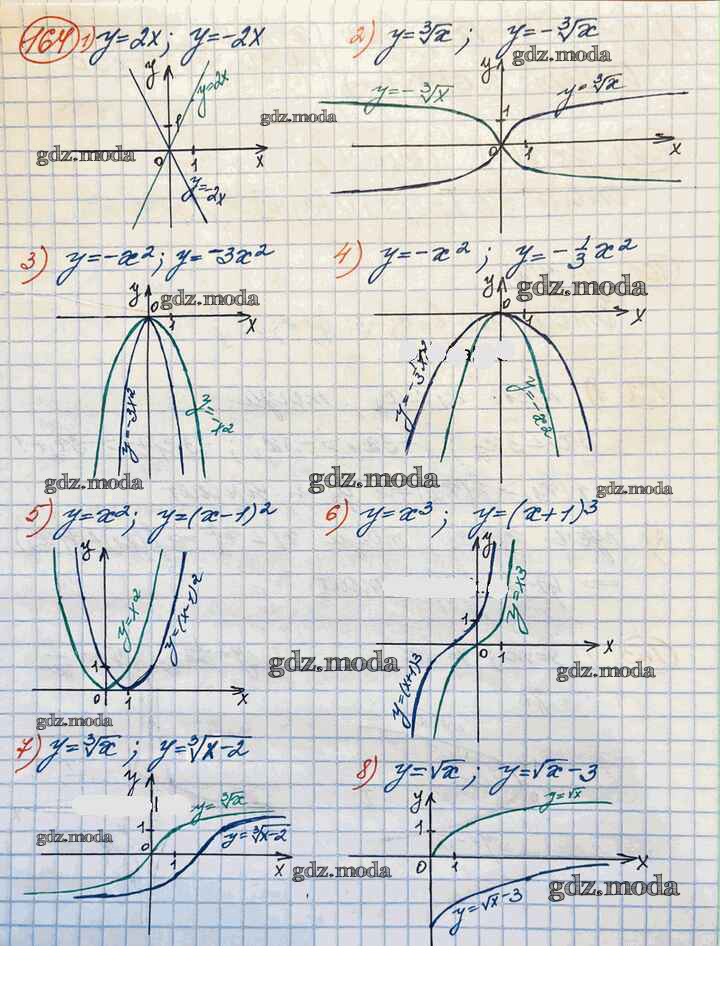 164 1) y=2x; y=-2x
y
y=2x
1
0 1 x
y=-2x
gdz.moda
gdz.moda
2) y=∛x; y=-∛x
gdz.moda
y
y=-∛x y=∛x
1
0 1 x
3) y=-x²; y=-3x²
y gdz.moda
0 1 x
y=-3x² y=-x²
gdz.moda
4) y=-x²; y=-1/3x²
y gdz.moda
0 1 x
y=-x²
gdz.moda
gdz.moda
5) y=x²; y=(x-1)²
y
y=x²
1
0 1 x
gdz.moda
gdz.moda
6) y=x³; y=(x+1)³
y
y=x³
1
0 1 x
y=(x+1)³
gdz.moda
7) y=∛x; y=∛x-2
y
y=∛x
1
y=∛x-2
0 1 x
gdz.moda
gdz.moda
8) y=√x; y=√x-3
y
y=√x
1
0 1 x
y=√x-3
gdz.moda